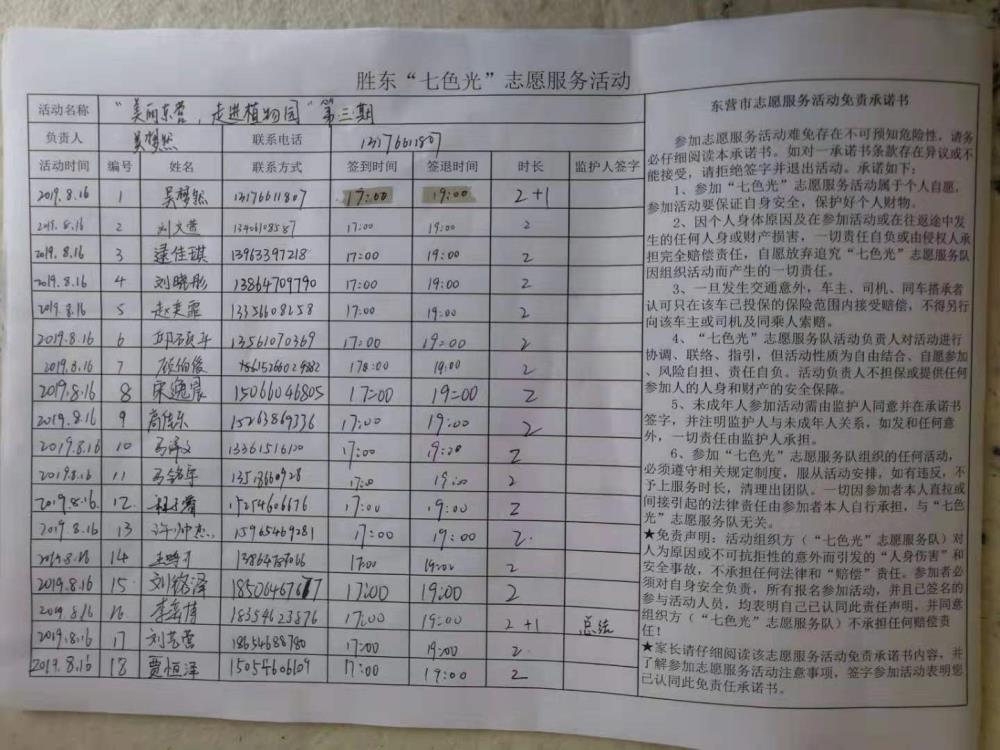 胜东“七色光”志愿服务活动
活动名称 “美丽东营，走进植物园”第三期
负责人 联系电话 13176611807
活动时间 编号 姓名 联系方式 签到时间 签退时间 时长 监护人签字
2019.8.16 1 13176611807 17:00 19:00 2+1
2019.8.16 2 刘文萱 13406108587 17:00 19:00 2
2019.8.16 3 逯佳琪 13963397218 17:00 19:00 2
2019.8.16 4 刘晓彤 13864709790 17:00 19:00 2
2019.8.16 5 赵奕霏 13356608258 17:00 19:00 2
2019.8.16 6 13561070369 17:00 19:00 2
2019.8.16 7 顾伯俊 19:00 2
2019.8.16 8 宋逸宸 15066046805 17:00 19:00 2
2019.8.16 9 高佳乐 15263869336 17:00 19:00 2
2019.8.16 10 马泽文 13361516120 17:00 2
2019.8.16 11 17:00 19:00 2
2019.8.16 12 17:00 19:00 2
2019.8.16 13 许帅杰 15965469281 17:00 19:00 2
2019.8.16 14 17:00 19:00 2
2019.8.16 15 刘铭泽 17:00 19:00 2
2019.8.16 16 17:00 19:00 2+1 总结
2019.8.16 17 18654688780 17:00 19:00 2
2019.8.16 18 贾恒泽 15054606109 17:00 19:00 2
东营市志愿服务活动免责承诺书
参加志愿服务活动难免存在不可预知危险性，请务
必仔细阅读本承诺书。如对一承诺书条款存在异议或不
能接受，请拒绝签字并退出活动。承诺如下：
1、参加“七色光”志愿服务活动属于个人自愿，
参加活动要保证自身安全，保护好个人财物。
2、因个人身体原因及在参加活动或在往返途中发
生的任何人身或财产损害，一切责任自负或由侵权人承
担完全赔偿责任，自愿放弃追究“七色光”志愿服务队
因组织活动而产生的一切责任。
3、一旦发生交通意外，车主、司机、同车搭承者
认可只在该车已投保的保险范围内接受赔偿，不得另行
向该车主或司机及同乘人索赔。
4、“七色光”志愿服务队活动负责人对活动进行
协调、联络、指引，但活动性质为自由结合、自愿参加
、风险自担、责任自负。活动负责人不担保或提供任何
参加人的人身和财产的安全保障。
5、未成年人参加活动需由监护人同意并在承诺书
签字，并注明监护人与未成年人关系，如发和任何意
外，一切责任由监护人承担。
6、参加“七色光”志愿服务队组织的任何活动，
必须遵守相关规定制度，服从活动安排，如有违反，不
予上服务时长，清理出团队。一切因参加者本人直拉或
间接引起的法律责任由参加者本人自行承担，与“七色
光”志愿服务队无关。
★免责声明：活动组织方（“七色光”志愿服务队）对
人为原因或不可抗拒性的意外而引发的“人身伤害”和
安全事故，不承担任何法律和“赔偿”责任。参加者必
须对自身安全负责，所有报名参加活动，并且已签名的
参与活动人员，均表明自己已认同此责任声明，并同意
组织方（“七色光”志愿服务队）不承担任何赔偿责
任！
★家长请仔细阅读该志愿服务活动免责承诺书内容，并
了解参加志愿服务活动注意事项，签字参加活动表明您
已认同此免责任承诺书。